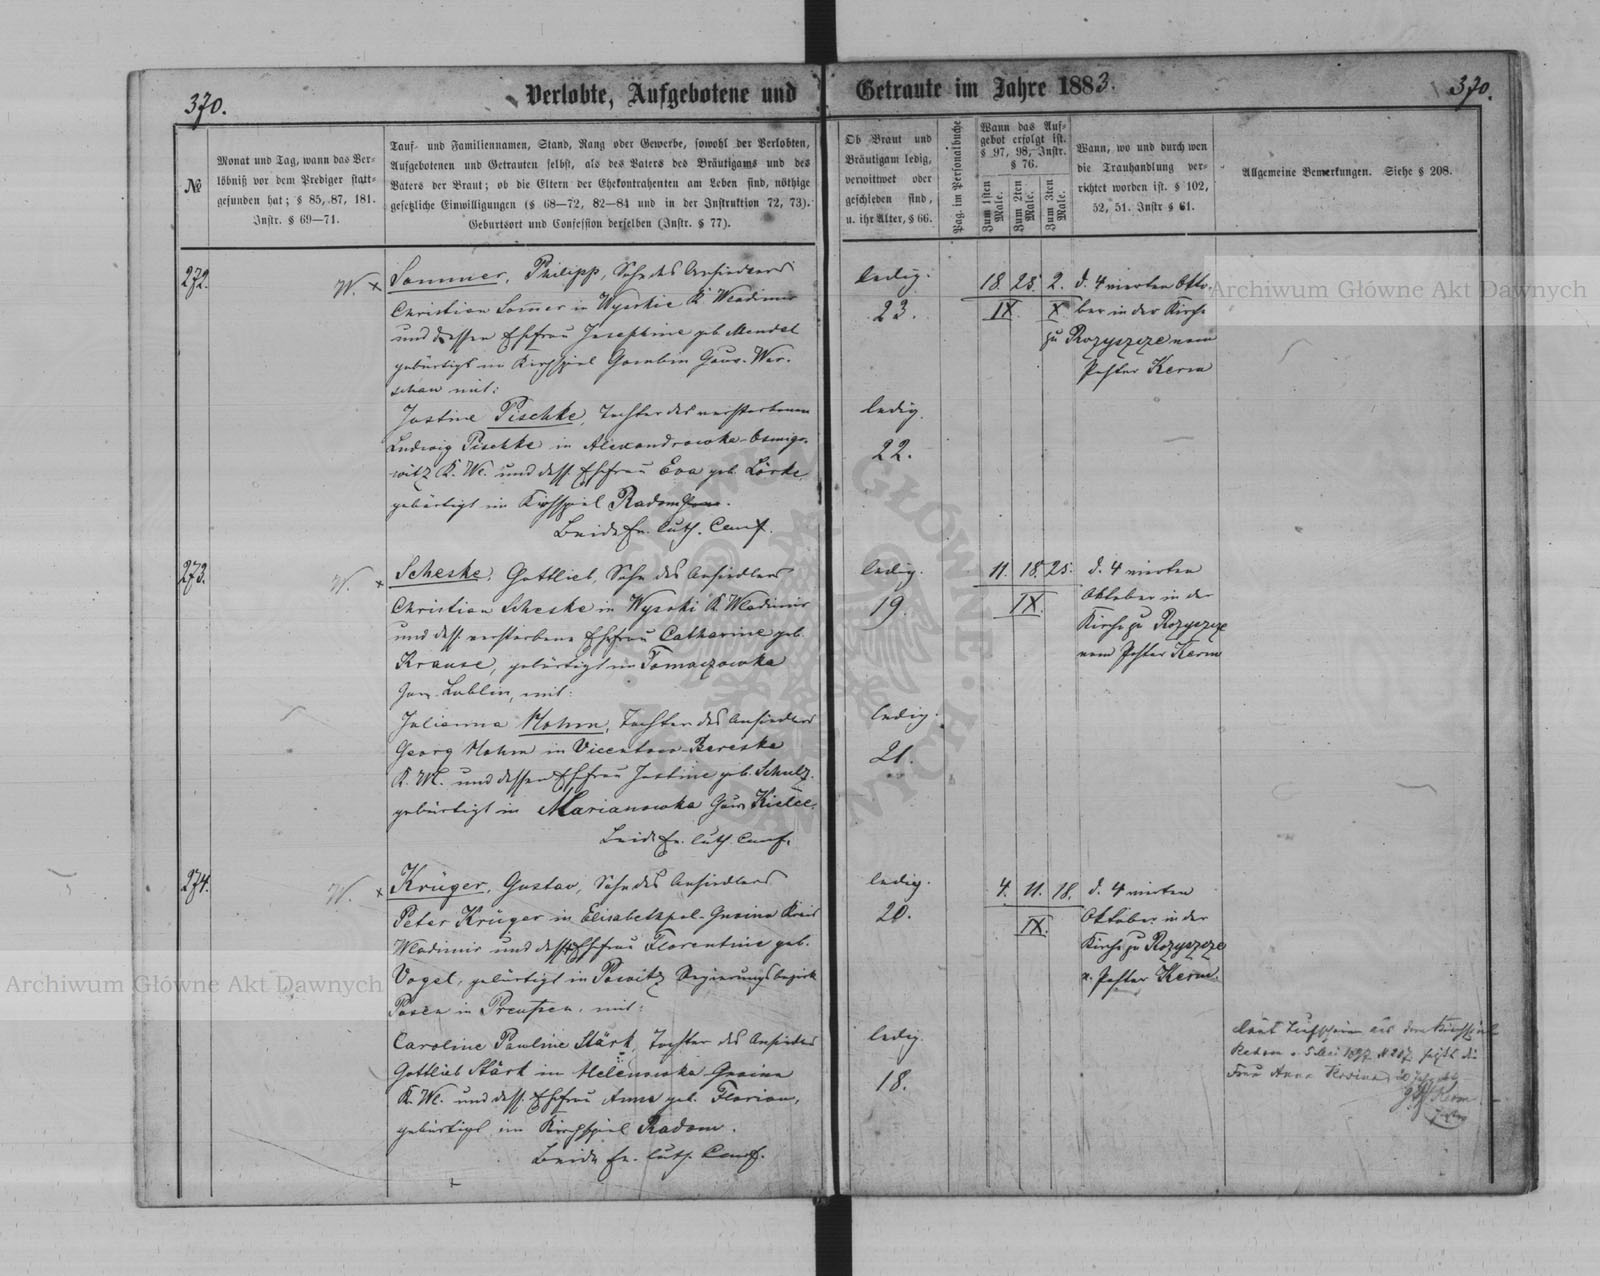 370.
Verlobte, Aufgebotene und Getraute im Jahre 1883.
370.
№
Monat und Tag, wann das Ver-
löbniß vor dem Prediger statt-
gefunden hat; § 85, 87, 181.
Instr. § 69—71.
Tauf- und Familiennamen, Stand, Rang oder Gewerbe, sowohl der Verlobten,
Aufgebotenen und Getrauten selbst, als des Vaters des Bräutigams und des
Vaters der Braut; ob die Eltern der Ehekontrahenten am Leben sind, nöthige
gesetzliche Einwilligungen (§ 68—72, 82—84 und in der Instruktion 72, 73).
Geburtsort und Confession derselben (Instr. § 77).
Ob Braut und
Bräutigam ledig,
verwittwet oder
geschieden sind,
u. ihr Alter, § 66.
Pag. im Personalbuche
Wann das Auf-
gebot erfolgt ist.
§ 97, 98, Instr.
§ 76.
Zum 1sten Male.
Zum 2ten Male.
Zum 3ten Male.
Wann, wo und durch wen
die Trauhandlung ver-
richtet worden ist. § 102,
52, 51. Instr § 61.
Allgemeine Bemerkungen. Siehe § 208.
272.
W. x
Sommer, Philipp, Sohn des Ansiedlers
Christian Sommer in Wysokie K. Wladimir
und dessen Ehefrau Josephine geb. Mendel
gebürtigt im Kirchspiel Gombin Gouv. War-
schau mit:
Justine Pischke, Tochter des verstorbenen
Ludwig Pischke in Alexandrowka-Osmigo-
witz K. Wl. und dess. Ehefrau Eva geb. Lörke,
gebürtigt im Kirchspiel Radom
Beide ev. luth. Conf.
ledig.
23.
ledig.
22.
18. 25. 2.
IX. X
d. 4 vierten Okto-
ber in der Kirche
zu Rozyszcze vom
Pastor Kerm
273.
W. x
Scheske, Gottlieb, Sohn des Ansiedlers
Christian Scheske in Wysoki K. Wladimir
und dess. verstorbene Ehefrau Catharine geb.
Krause, gebürtigt in Tomaczowka
Gouv. Lublin, mit:
Julianna Hohm, Tochter des Ansiedlers
Georg Hohm in Bereske
K. Wl. und dessen Ehefrau Justine geb. Schulz
gebürtigt in Marianowka Gouv Kielce,
Beide ev. luth. Conf.
ledig.
19.
ledig.
21.
11. 18. 25.
IX.
d. 4 vierten
Oktober in der
Kirche zu Rozyszcze
vom Pastor Kerm
274.
W. x
Krüger, Gustav, Sohn des Ansiedlers
Peter Krüger in Elisabethpol-Gnoina Kreis
Wladimir und dess. Ehefrau Florentine geb.
Vogel, gebürtigt in Powitz Regierungsbezirk
Posen in Preußen, mit:
Caroline Pauline Stärk, Tochter des Ansiedlers
Gottlieb Stärk in Helenowka Gnoina
K. Wl. und dess. Ehefrau Anna geb. Florian,
gebürtigt im Kirchspiel Radom.
Beide ev. luth. Conf.
ledig.
20.
ledig.
18.
4. 11. 18.
IX.
d. 4 vierten
Oktober in der
Kirche zu Rozyszcze
v. Pastor Kerm
Laut Taufschein aus dem Kirchspiel
Radom
Frau Anna
Kerm
Pastor
Archiwum Główne Akt Dawnych
Archiwum Główne Akt Dawnych
ARCHIWUM GŁÓWNE AKT DAWNYCH